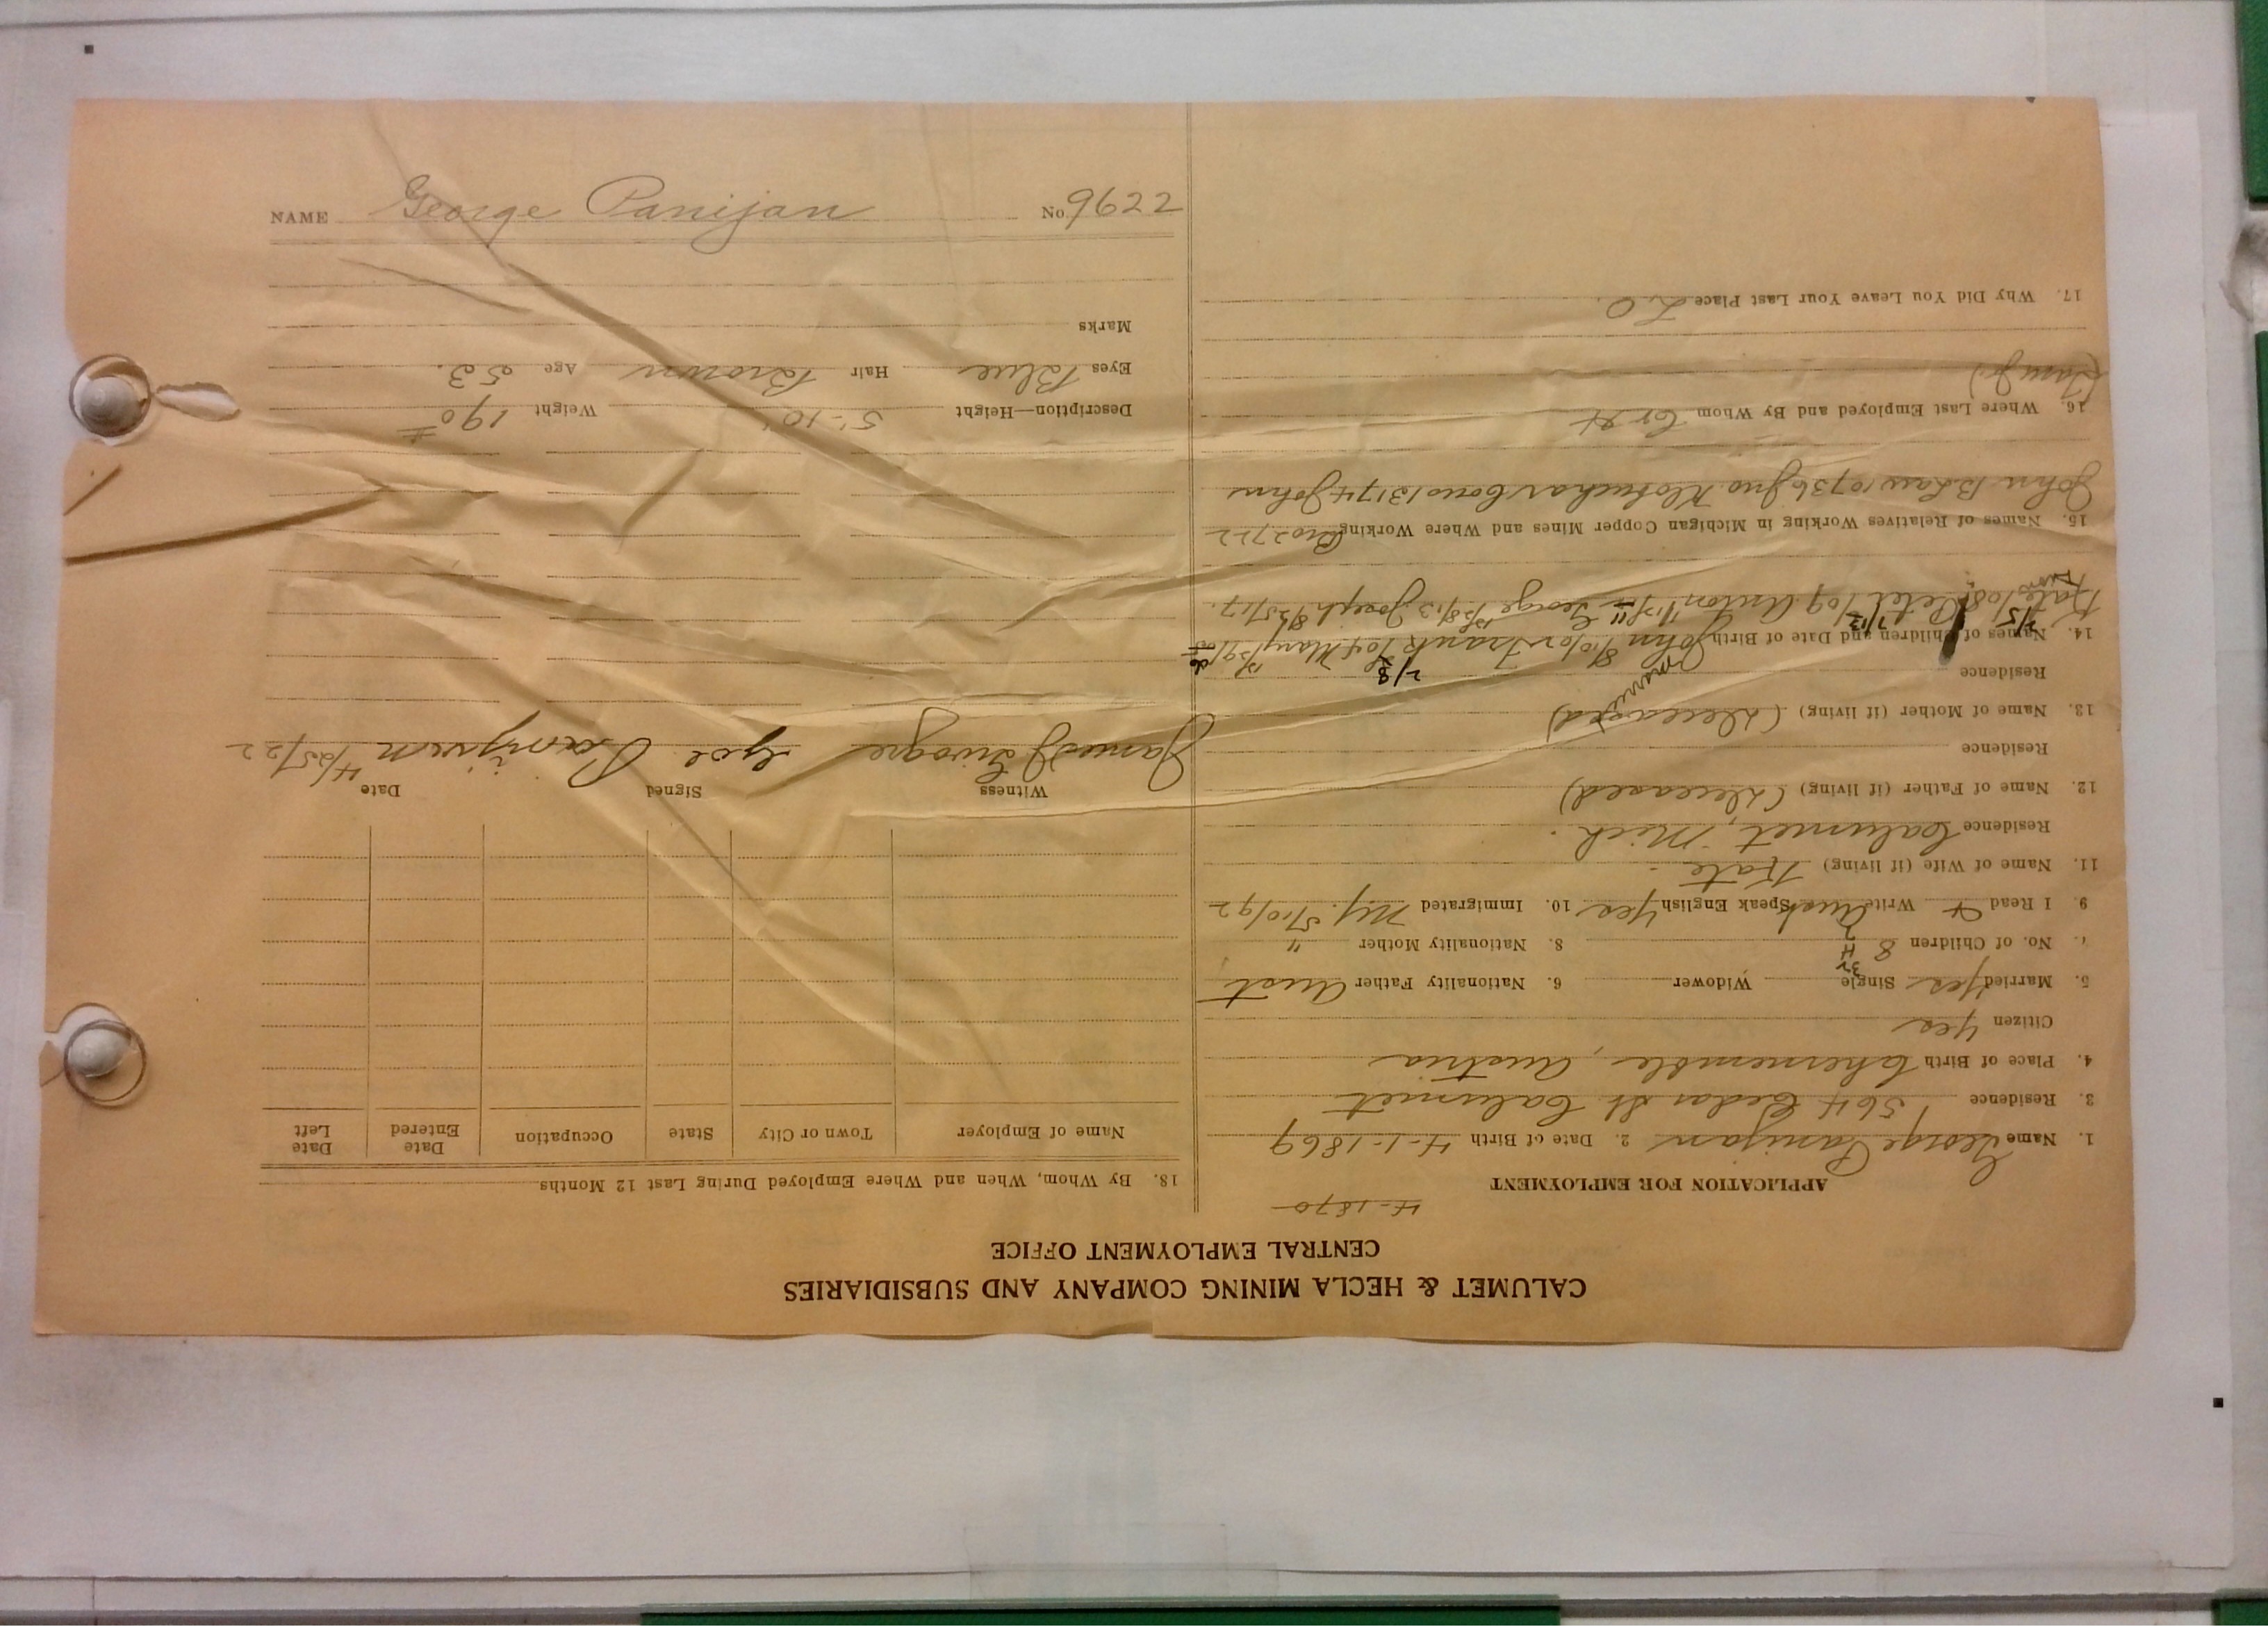 CALUMET & HECLA MINING COMPANY AND SUBSIDIARIES
CENTRAL EMPLOYMENT OFFICE
4-1870
APPLICATION FOR EMPLOYMENT
1. Name George Panijan 2. Date of Birth 4-1-1869
3. Residence 1564 Cedar St. Calumet
4. Place of Birth Chernemble, Austria
Citizen Yes
5. Married Yes Single Widower 6. Nationality Father Aust
7. No. of Children 8 8. Nationality Mother "
9. I Read + Write Aust Speak English Yes 10. Immigrated N.Y. 5/10/92
11. Name of Wife (if living) Kate.
Residence Calumet, Mich.
12. Name of Father (if living) (Deceased)
Residence
13. Name of Mother (if living) (Deceased)
Residence
14. Names of Children and Date of Birth John 8/10/02 Frank /04 Mary
Kate /08 Peter /09 Anton George Joseph
15. Names of Relatives Working in Michigan Copper Mines and Where Working Bro 2722
John B Law 10736 Jno Klobuchar Cous 13174 John
16. Where Last Employed and By Whom C+H
17. Why Did You Leave Your Last Place L.O.
18. By Whom, When and Where Employed During Last 12 Months
Name of Employer Town or City State Occupation Date Entered Date Left
Witness Signed Date
James Geo. Panijan 4/25/22
Description—Height 5'-10" Weight 190
Eyes Blue Hair Brown Age 53.
Marks
NAME George Panijan No. 9622